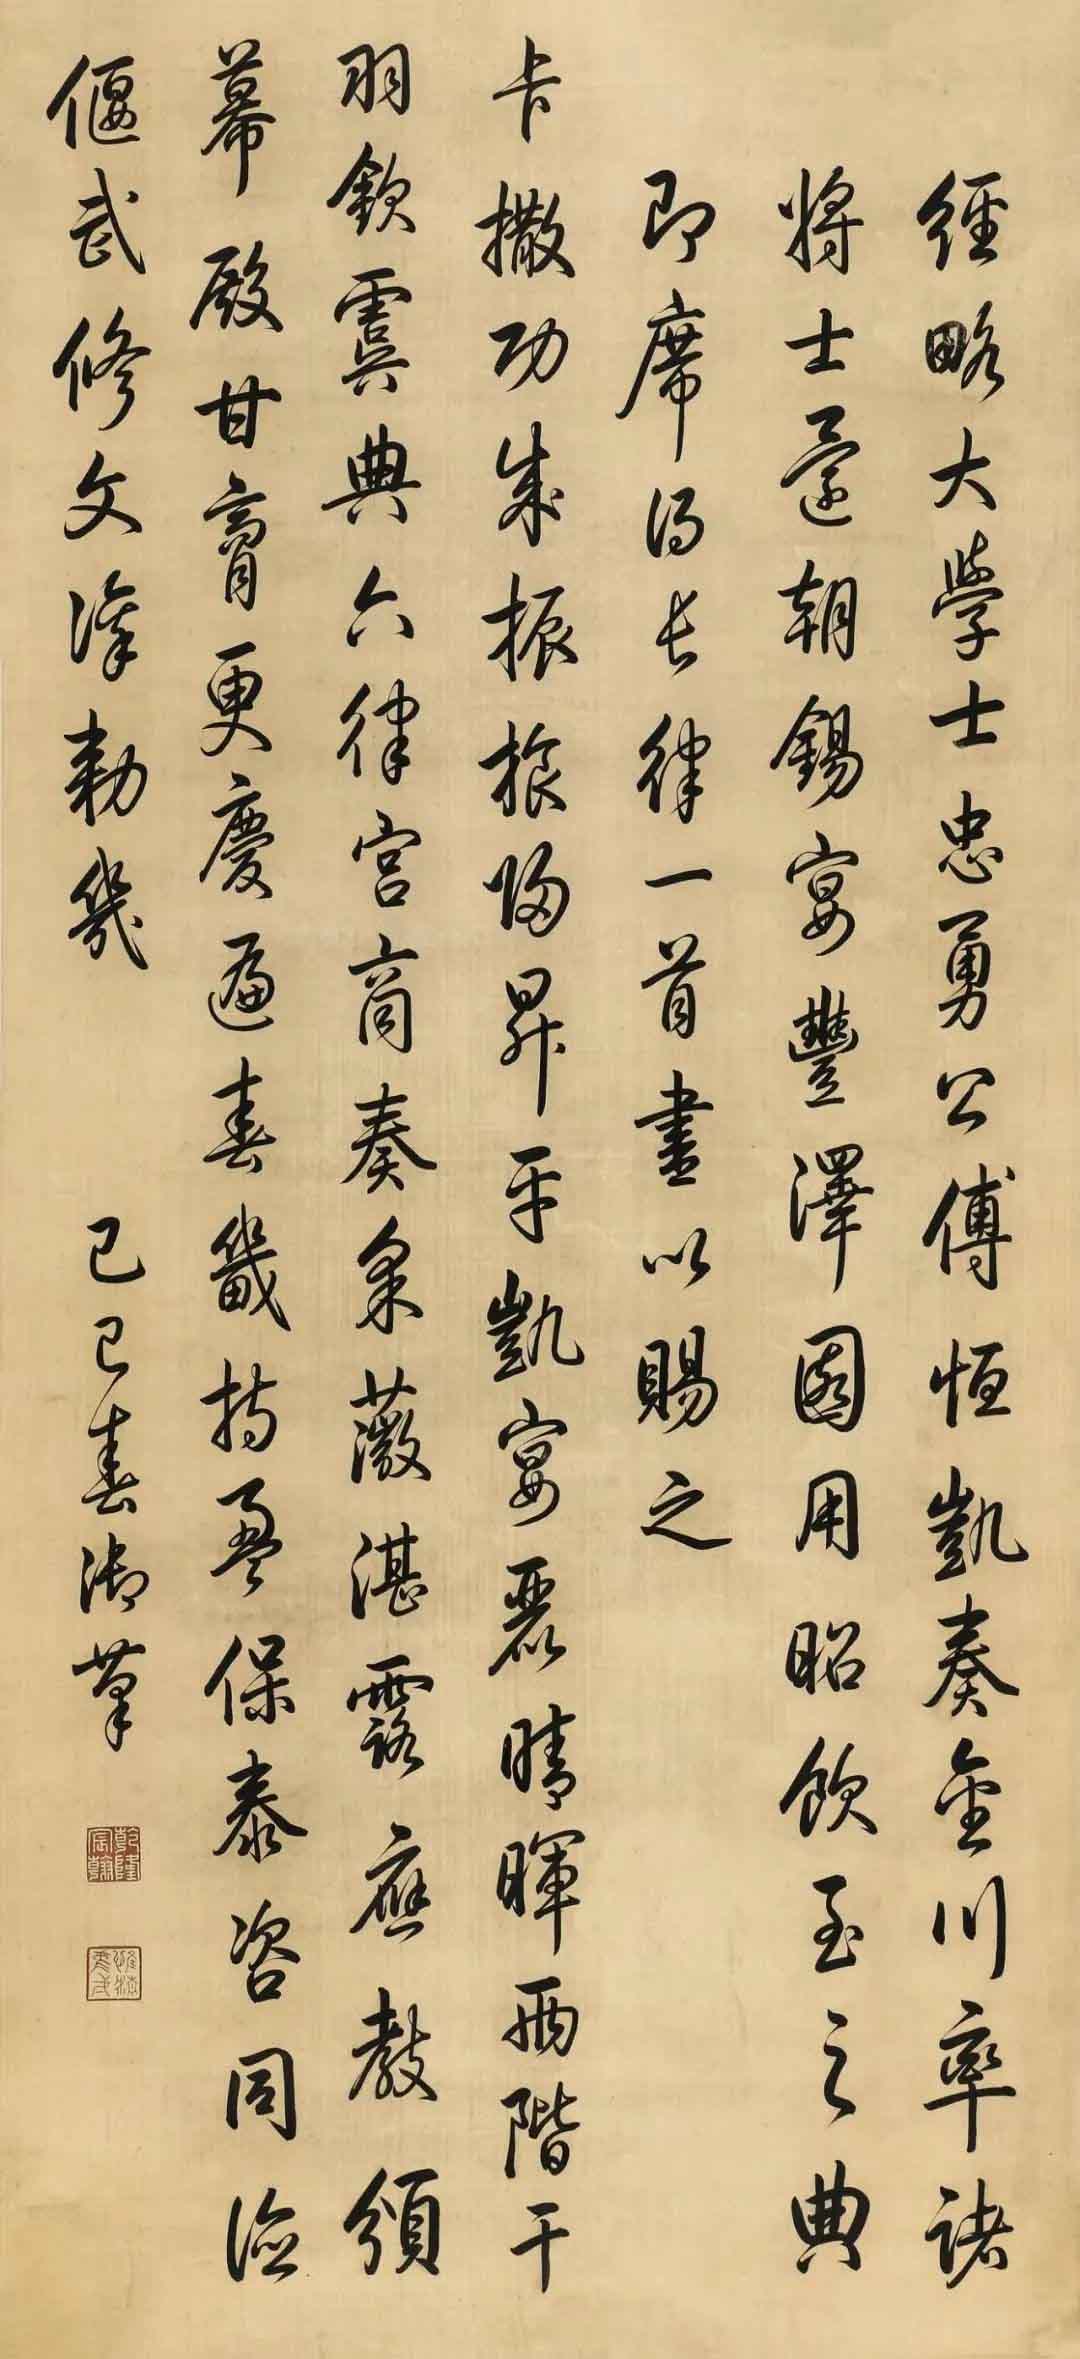 經略大學士忠勇公傅恒凱奏金川率諸
將士還朝錫宴豐澤園用昭飲至之典
即席得長律一首書以賜之
卡撒功成振旅歸昇平凱宴麗晴暉兩階干
羽欽虞典六律宮商奏采薇湛露應教頒
幕殿甘膏更慶遍春畿持盈保泰咨同德
偃武修文凜勑幾
己巳春御筆
乾隆宸翰
惟精惟一